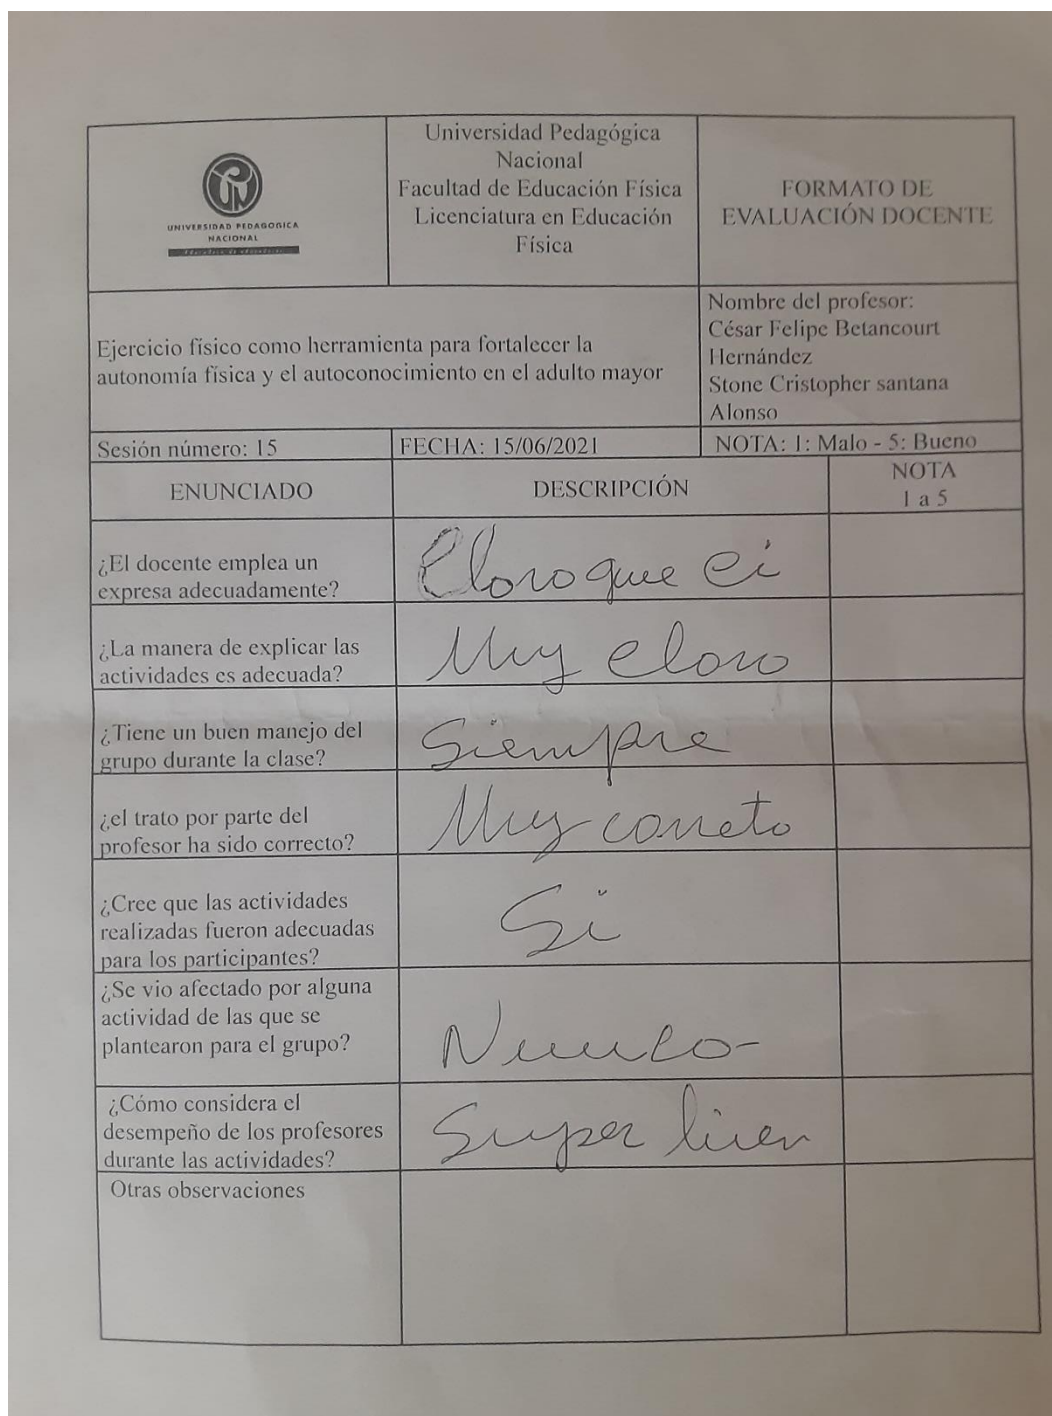 UNIVERSIDAD PEDAGOGICA
NACIONAL
Universidad Pedagógica
Nacional
Facultad de Educación Física
Licenciatura en Educación
Física
FORMATO DE
EVALUACIÓN DOCENTE
Ejercicio físico como herramienta para fortalecer la
autonomía física y el autoconocimiento en el adulto mayor
Nombre del profesor:
César Felipe Betancourt
Hernández
Stone Cristopher santana
Alonso
Sesión número: 15
FECHA: 15/06/2021
NOTA: 1: Malo - 5: Bueno
ENUNCIADO
DESCRIPCIÓN
NOTA
1 a 5
¿El docente emplea un
expresa adecuadamente?
Claro que si
¿La manera de explicar las
actividades es adecuada?
Muy claro
¿Tiene un buen manejo del
grupo durante la clase?
Siempre
¿el trato por parte del
profesor ha sido correcto?
Muy correto
¿Cree que las actividades
realizadas fueron adecuadas
para los participantes?
Si
¿Se vio afectado por alguna
actividad de las que se
plantearon para el grupo?
Nunca-
¿Cómo considera el
desempeño de los profesores
durante las actividades?
Super bien
Otras observaciones